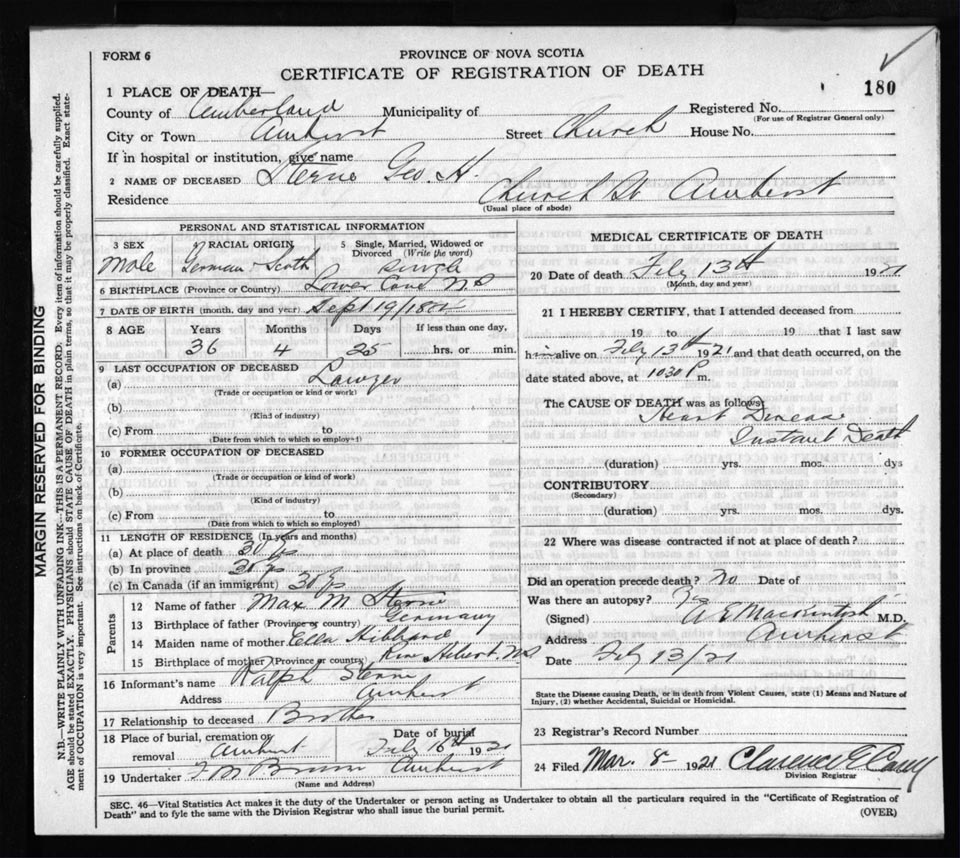 FORM 6
PROVINCE OF NOVA SCOTIA
CERTIFICATE OF REGISTRATION OF DEATH
180
1 PLACE OF DEATH—
County of Cumberland Municipality of Registered No.
(For use of Registrar General only)
City or Town Amherst Street Church House No.
If in hospital or institution, give name
2 NAME OF DECEASED Sterne Geo. H.
Residence Church St Amherst
(Usual place of abode)
PERSONAL AND STATISTICAL INFORMATION
3 SEX Male
4 RACIAL ORIGIN German & Scotch
5 Single, Married, Widowed or Divorced (Write the word) Single
6 BIRTHPLACE (Province or Country) Lower Cove N S
7 DATE OF BIRTH (month, day and year) Sept 19/
8 AGE Years Months Days If less than one day,
36 4 25 hrs. or min.
9 LAST OCCUPATION OF DECEASED
(a) Lawyer
(Trade or occupation or kind or work)
(b)
(Kind of industry)
(c) From to
(Date from which to which so employed)
10 FORMER OCCUPATION OF DECEASED
(a)
(Trade or occupation or kind of work)
(b)
(Kind of industry)
(c) From to
(Date from which to which so employed)
11 LENGTH OF RESIDENCE (In years and months)
(a) At place of death 30 yrs
(b) In province 30 yrs
(c) In Canada (if an immigrant) 30 yrs
Parents
12 Name of father Max M Sterne
13 Birthplace of father (Province or country) Germany
14 Maiden name of mother Ella Hibbard
15 Birthplace of mother (Province or country) River Hebert N S
16 Informant's name Ralph Sterne
Address Amherst
17 Relationship to deceased Brother
18 Place of burial, cremation or removal Amherst
Date of burial Feby 16th 1921
19 Undertaker Amherst
(Name and Address)
MEDICAL CERTIFICATE OF DEATH
20 Date of death Feby 13th 1921
(Month, day and year)
21 I HEREBY CERTIFY, that I attended deceased from
19 to 19 that I last saw
him alive on Feby 13th 1921 and that death occurred, on the
date stated above, at 1030 P m.
The CAUSE OF DEATH was as follows
Heart Disease
Instant Death
(duration) yrs. mos. dys
CONTRIBUTORY
(Secondary)
(duration) yrs. mos. dys.
22 Where was disease contracted if not at place of death?
Did an operation precede death? no Date of
Was there an autopsy? No
(Signed) Mackintosh M.D.
Address Amherst
Date Feby 13/21
State the Disease causing Death, or in death from Violent Causes, state (1) Means and Nature of
Injury, (2) whether Accidental, Suicidal or Homicidal.
23 Registrar's Record Number
24 Filed Mar. 8- 1921 Clarence
Division Registrar
SEC. 46—Vital Statistics Act makes it the duty of the Undertaker or person acting as Undertaker to obtain all the particulars required in the "Certificate of Registration of
Death" and to fyle the same with the Division Registrar who shall issue the burial permit.
(OVER)
MARGIN RESERVED FOR BINDING
N.B.—WRITE PLAINLY WITH UNFADING INK—THIS IS A PERMANENT RECORD. Every item of information should be carefully supplied.
AGE should be stated EXACTLY. PHYSICIANS should STATE CAUSE OF DEATH in plain terms, so that it may be properly classified. Exact state-
ment of OCCUPATION is very important. See instructions on back of Certificate.